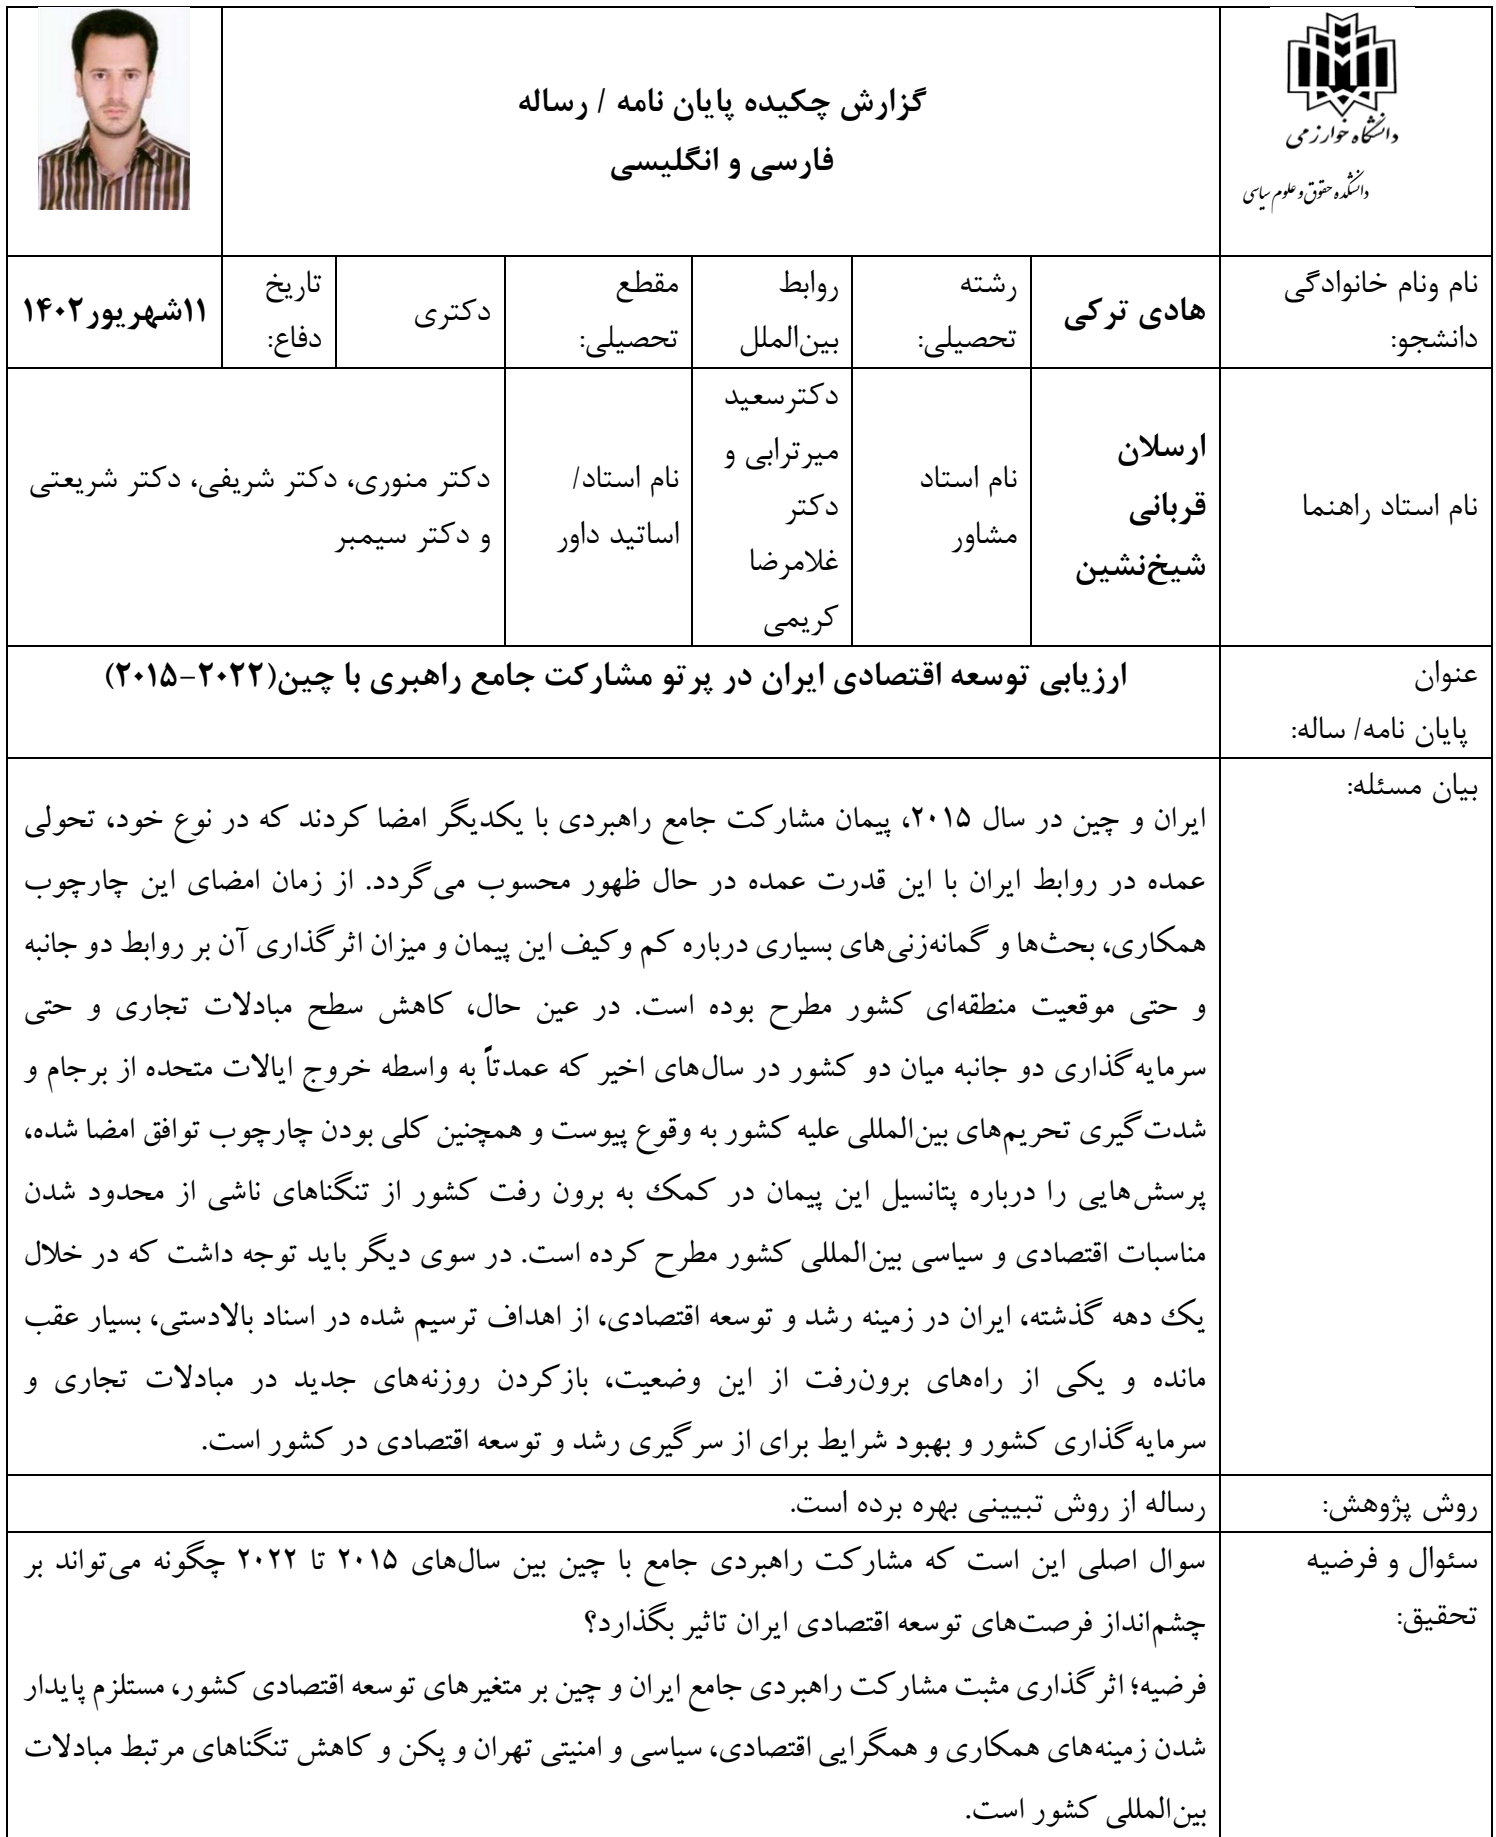 دانشگاه خوارزمی
دانشکده حقوق و علوم سیاسی
گزارش چکیده پایان نامه / رساله
فارسی و انگلیسی
نام ونام خانوادگی
دانشجو:
هادی ترکی
رشته
تحصیلی:
روابط
بین‌الملل
مقطع
تحصیلی:
دکتری
تاریخ
دفاع:
۱۱شهریور۱۴۰۲
نام استاد راهنما
ارسلان
قربانی
شیخ‌نشین
نام استاد
مشاور
دکترسعید
میرترابی و
دکتر
غلامرضا
کریمی
نام استاد/
اساتید داور
دکتر منوری، دکتر شریفی، دکتر شریعتی
و دکتر سیمبر
عنوان
پایان نامه/ ساله:
ارزیابی توسعه اقتصادی ایران در پرتو مشارکت جامع راهبری با چین(۲۰۲۲-۲۰۱۵)
بیان مسئله:
ایران و چین در سال ۲۰۱۵، پیمان مشارکت جامع راهبردی با یکدیگر امضا کردند که در نوع خود، تحولی
عمده در روابط ایران با این قدرت عمده در حال ظهور محسوب می‌گردد. از زمان امضای این چارچوب
همکاری، بحث‌ها و گمانه‌زنی‌های بسیاری درباره کم وکیف این پیمان و میزان اثرگذاری آن بر روابط دو جانبه
و حتی موقعیت منطقه‌ای کشور مطرح بوده است. در عین حال، کاهش سطح مبادلات تجاری و حتی
سرمایه‌گذاری دو جانبه میان دو کشور در سال‌های اخیر که عمدتاً به واسطه خروج ایالات متحده از برجام و
شدت‌گیری تحریم‌های بین‌المللی علیه کشور به وقوع پیوست و همچنین کلی بودن چارچوب توافق امضا شده،
پرسش‌هایی را درباره پتانسیل این پیمان در کمک به برون رفت کشور از تنگناهای ناشی از محدود شدن
مناسبات اقتصادی و سیاسی بین‌المللی کشور مطرح کرده است. در سوی دیگر باید توجه داشت که در خلال
یک دهه گذشته، ایران در زمینه رشد و توسعه اقتصادی، از اهداف ترسیم شده در اسناد بالادستی، بسیار عقب
مانده و یکی از راه‌های برون‌رفت از این وضعیت، بازکردن روزنه‌های جدید در مبادلات تجاری و
سرمایه‌گذاری کشور و بهبود شرایط برای از سرگیری رشد و توسعه اقتصادی در کشور است.
روش پژوهش:
رساله از روش تبیینی بهره برده است.
سئوال و فرضیه
تحقیق:
سوال اصلی این است که مشارکت راهبردی جامع با چین بین سال‌های ۲۰۱۵ تا ۲۰۲۲ چگونه می‌تواند بر
چشم‌انداز فرصت‌های توسعه اقتصادی ایران تاثیر بگذارد؟
فرضیه؛ اثرگذاری مثبت مشارکت راهبردی جامع ایران و چین بر متغیرهای توسعه اقتصادی کشور، مستلزم پایدار
شدن زمینه‌های همکاری و همگرایی اقتصادی، سیاسی و امنیتی تهران و پکن و کاهش تنگناهای مرتبط مبادلات
بین‌المللی کشور است.